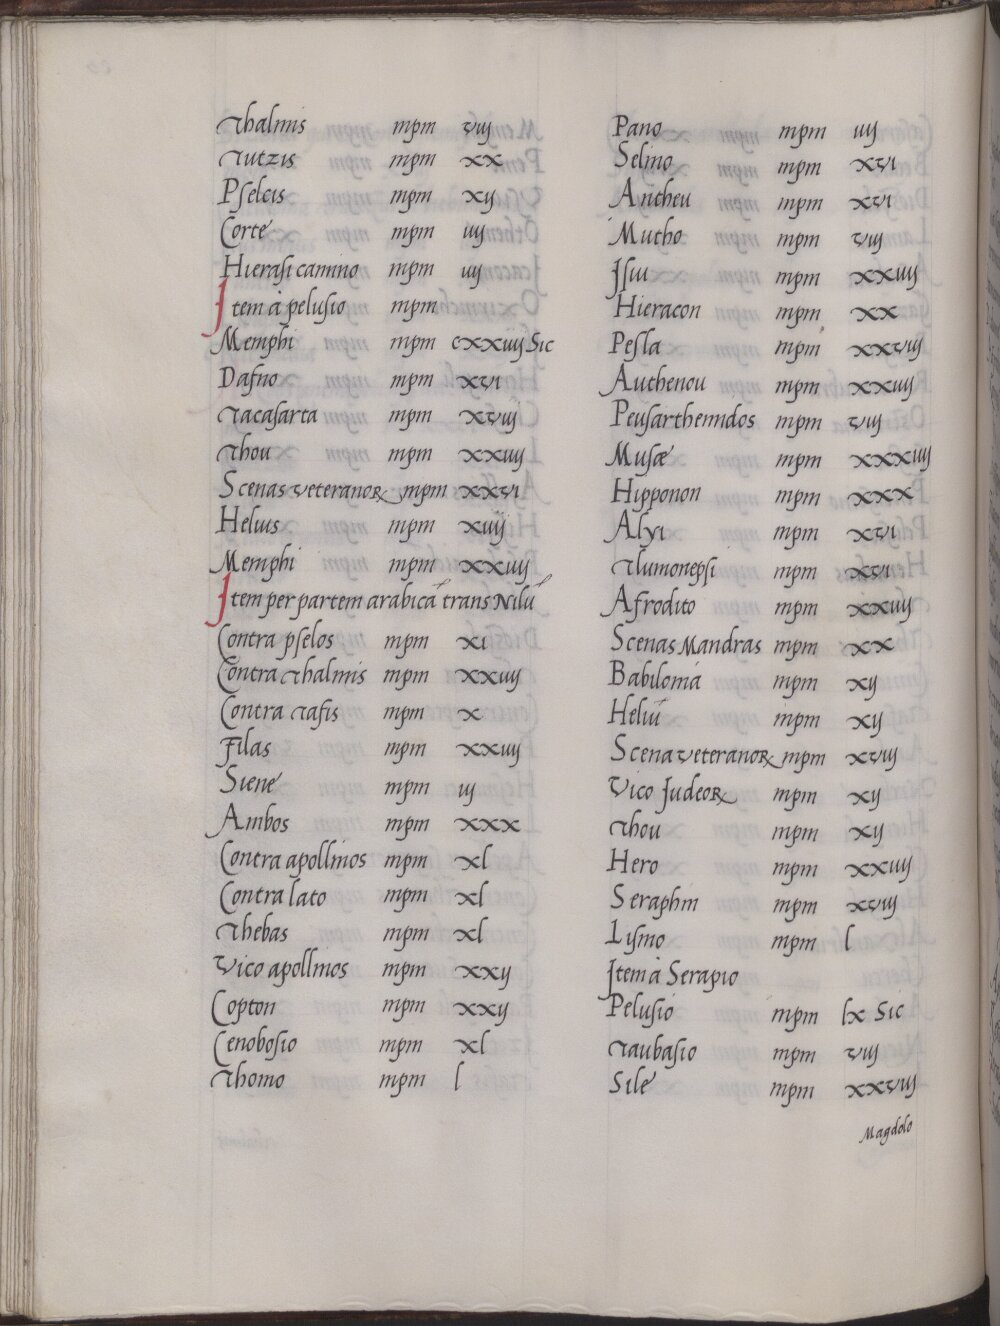 Thalmis mpm viij
Tutzis mpm xx
Pselcis mpm xij
Corte mpm iiij
Hierasicamino mpm iiij
Item a pelusio mpm
Memphi mpm cxxiiij Sic
Dafno mpm xvi
Tacasarta mpm xviij
Thou mpm xxiiij
Scenas veteranoꝝ mpm xxvi
Helius mpm xiiij
Memphi mpm xxiiij
Item per partem arabicā trans Nilū
Contra pselos mpm xi
Contra Thalmis mpm xxiiij
Contra Tafis mpm x
Filas mpm xxiiij
Siene mpm iij
Ambos mpm xxx
Contra apollinos mpm xl
Contra lato mpm xl
Thebas mpm xl
Vico apollinos mpm xxij
Copton mpm xxij
Cenobosio mpm xl
Thomo mpm l
Pano mpm iiij
Selino mpm xvi
Antheu mpm xvi
Mutho mpm viij
Isui mpm xxiiij
Hieracon mpm xx
Pesla mpm xxviij
Anthenou mpm xxiiij
Peusarthemidos mpm viij
Musæ mpm xxxiiij
Hipponon mpm xxx
Alyi mpm xvi
Tlumonepsi mpm xvi
Afrodito mpm xxiiij
Scenas Mandras mpm xx
Babilonia mpm xij
Heliu mpm xij
Scena veteranoꝝ mpm xviij
Vico Judeoꝝ mpm xij
Thou mpm xij
Hero mpm xxiiij
Seraphin mpm xviij
Lysmo mpm l
Item a Serapio
Pelusio mpm lx Sic
Taubasio mpm viij
Sile mpm xxviij
Magdolo